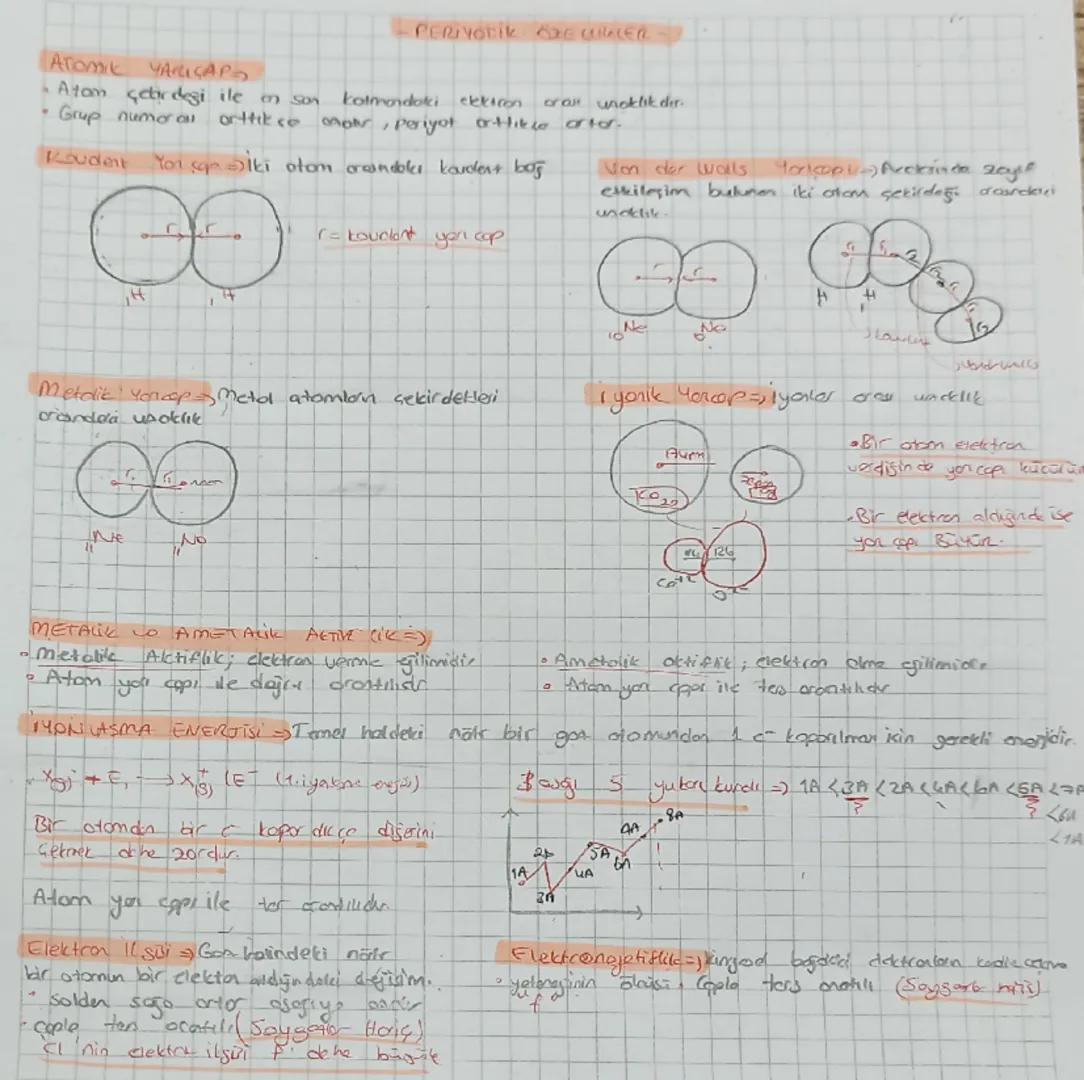 PERİYOTİK ÖZELLİKLER
Atomik YARIÇAP ⇒
• Atom çekirdeği ile en son katmandaki elektron arası uzaklıkdır.
• Grup numarası arttıkca azalır, periyot arttıkca artar.
Kovalent Yarıçap ⇒ İki atom arasındaki kovalent bağ
r r
r = kovalent yarıçap
₁H ₁H
Van der Walls Yarıçapı ⇒ Aralarında zayıf
etkileşim bulunan iki atom çekirdeği arasındaki
uzaklık.
r r
₁₀Ne ₁₀Ne
H H
Metalik Yarıçap ⇒ Metal atomların çekirdekleri
arasındaki uzaklık
İyonik Yarıçap ⇒ iyonlar arası uzaklık
• Bir atom elektron
verdiğinde yarıçap küçülür
• Bir elektron aldığında ise
yarıçapı Büyür.
METALİK ve AMETALİK AKTİFLİK ⇒
• Metalik Aktiflik; elektron verme eğilimidir
• Atom yarıçapı ile doğru orantılıdır
• Ametalik aktiflik; elektron alma eğilimidir
• Atom yarıçapı ile ters orantılıdır
İYONLAŞMA ENERJİSİ ⇒ Temel haldeki nötr bir gaz atomundan 1 e⁻ koparılması için gerekli enerjidir.
3 aşağı 5 yukarı kuralı ⇒ 1A < 3A < 2A < 4A < 6A < 5A < 7A
Bir atomdan bir e⁻ kopardıkça diğerini
çekmek daha zordur.
1A 2A 3A 4A 5A 6A 8A
Atom yarıçapı ile ters orantılıdır
Elektron ilgisi ⇒ Gaz halindeki nötr
bir atomun bir elektron aldığındaki değişim.
• soldan sağa artar aşağıya azalır
• çapla ters orantılı (Soygazlar Hariç)
Cl 'nin elektron ilgisi F' dehe büyük
Elektronegatiflik ⇒
• yeteneğinin ölçüsü, çapla ters orantılı